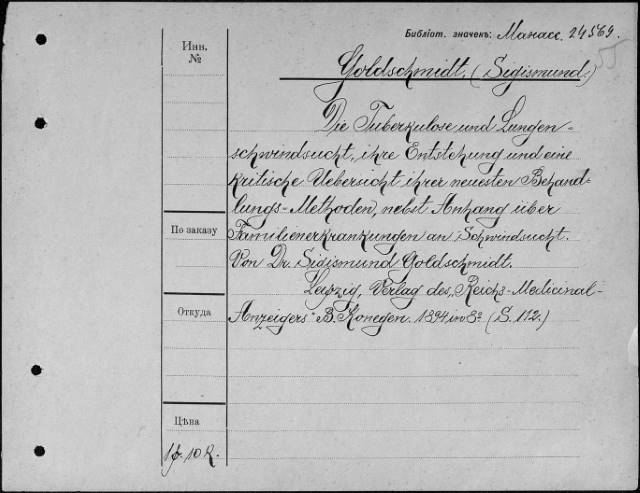 Библіот. значекъ: Манасс. 24569.
Инв.
№
Goldschmidt, (Sigismund.)
Die Tuberkulose und Lungen-
schwindsucht, ihre Entstehung und eine
kritische Uebersicht ihrer neuesten Behand-
lungs-Methoden, nebst Anhang über
По заказу
Familienerkrankungen an Schwindsucht.
Von Dr. Sigismund Goldschmidt.
Leipzig, Verlag des „Reichs-Medicinal-
Откуда
Anzeigers" B. Konegen. 1894 in 8° (S. 112.)
Цѣна
1 р. 10 к.